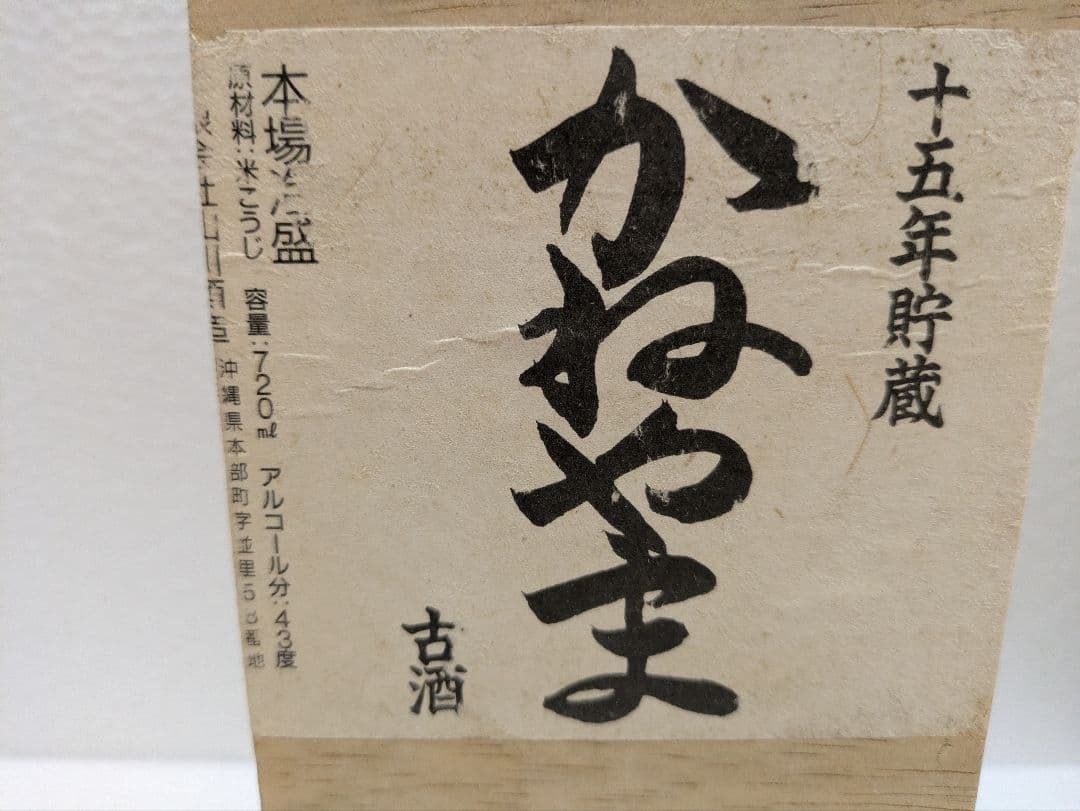 十五年貯蔵
かねやま
古酒
本場泡盛
原材料:米こうじ 容量:720㎖ アルコール分:43度
限会社山川酒造 沖縄県本部町字並里58番地